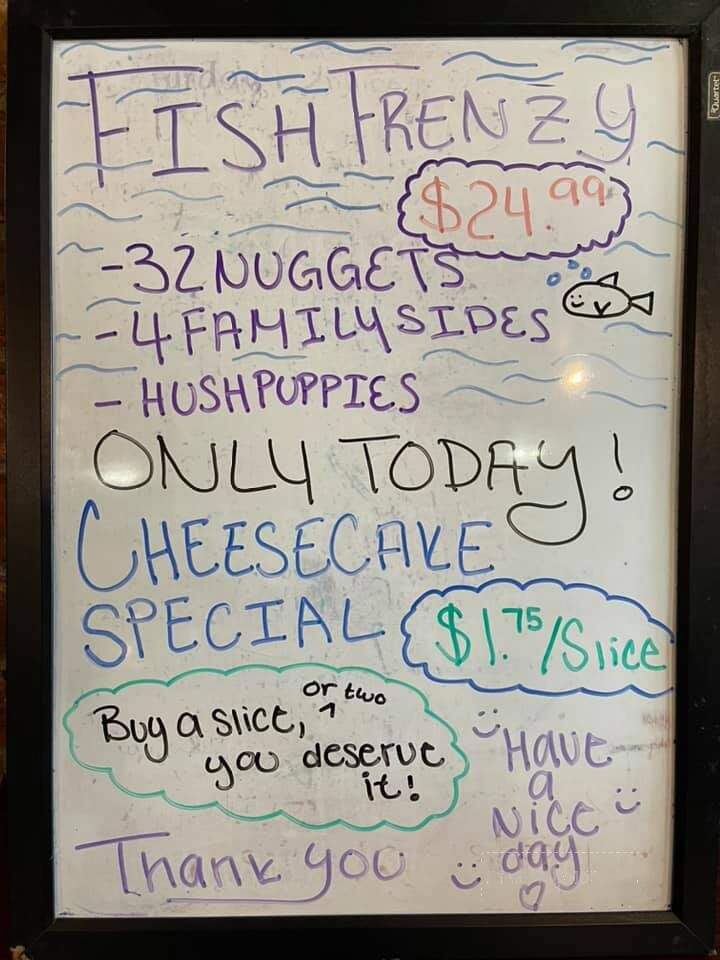 Quartet
FISH FRENZY
$24.99
-32 NUGGETS
-4 FAMILY SIDES
- HUSHPUPPIES
ONLY TODAY!
CHEESECAKE
SPECIAL
$1.75/Slice
Buy a slice, or two
you deserve
it!
Have
a
Nice
day
Thank you